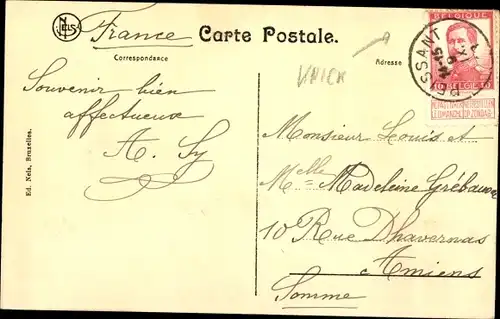 NELS
France
Carte Postale.
Correspondance
Adresse
BELGIQUE
10 BELGIË 10
NE PAS LIVRER LE DIMANCHE
PEISSANT
14-15
Souvenir bien
affectueux
A. Sy
Ed. Nels, Bruxelles.
Monsieur Louis et
Melle Madeleine Grébauval
10 Rue Dhavernas
Amiens
Somme